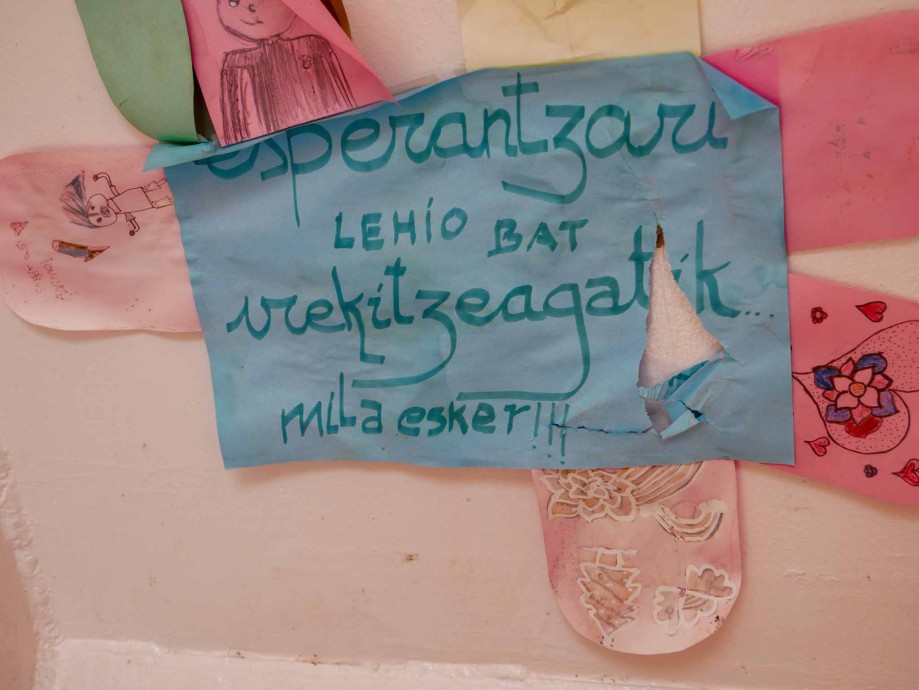 esperantzari
LEHÍO BAT
irekitzeagatik...
mila esker!!!